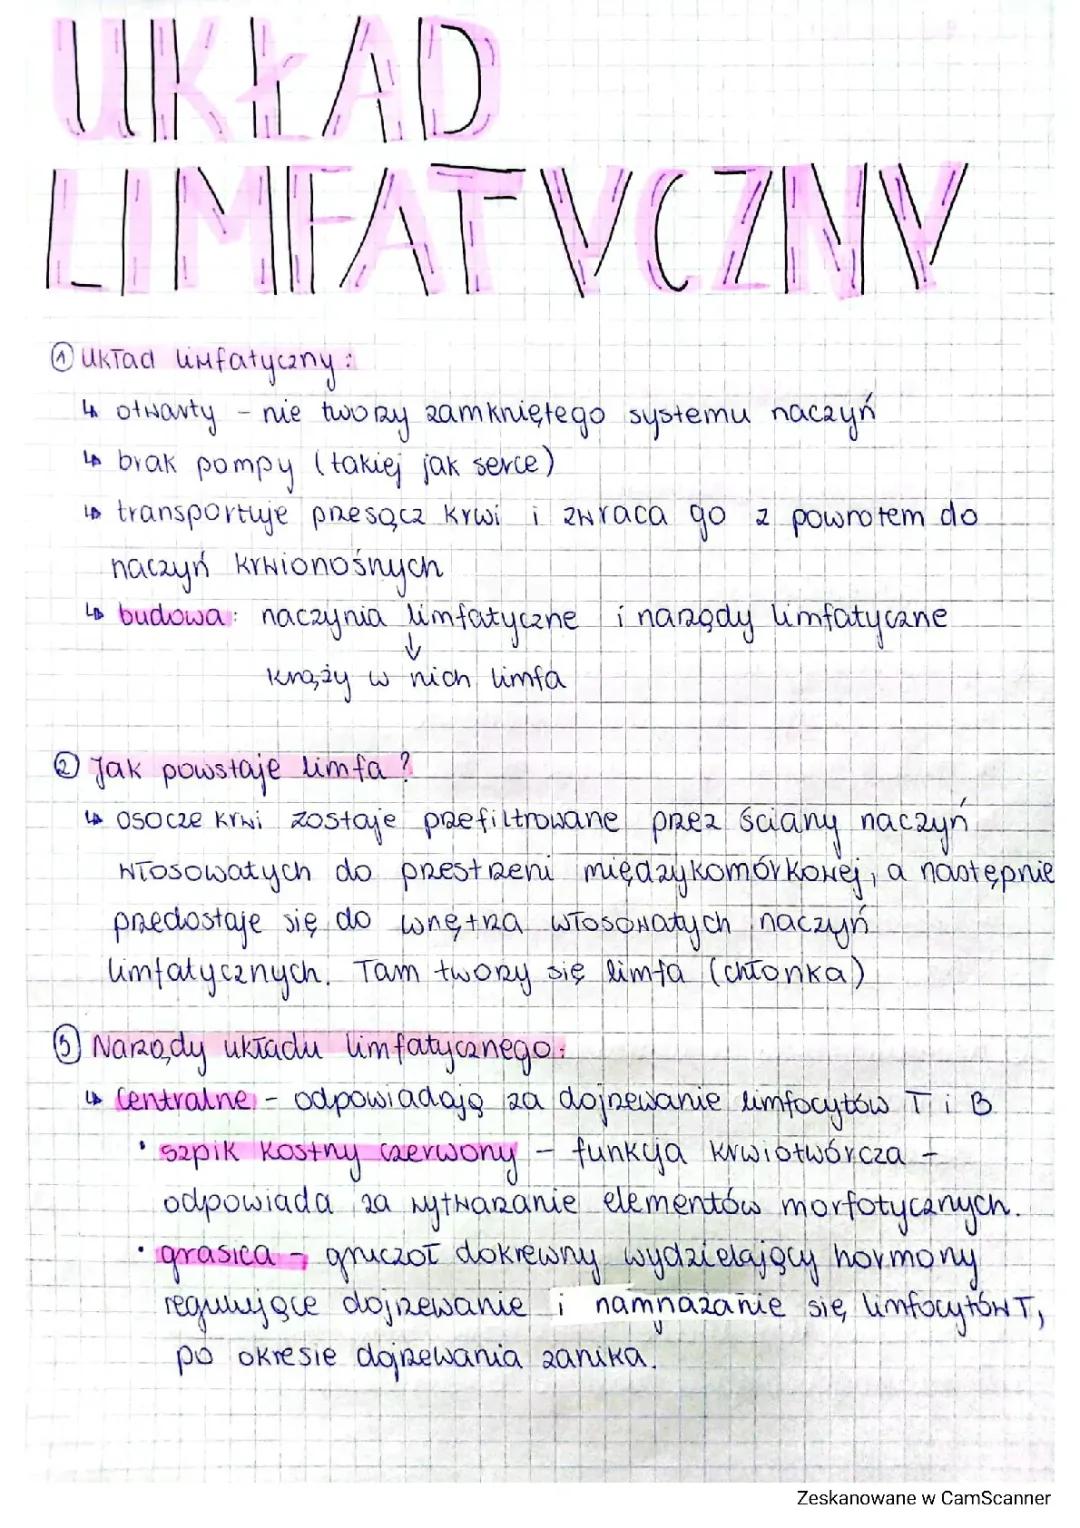 UKŁAD
LIMFATYCZNY
① układ limfatyczny:
↳ otwarty - nie tworzy zamkniętego systemu naczyń
↳ brak pompy (takiej jak serce)
↳ transportuje przesącz krwi i zwraca go z powrotem do
naczyń krwionośnych
↳ budowa: naczynia limfatyczne i narządy limfatyczne
↓
krąży w nich limfa
② Jak powstaje limfa?
↳ osocze krwi zostaje przefiltrowane przez ściany naczyń
włosowatych do przestrzeni międzykomórkowej, a następnie
przedostaje się do wnętrza włosowatych naczyń
limfatycznych. Tam tworzy się limfa (chłonka)
③ Narządy układu limfatycznego:
↳ Centralne - odpowiadają za dojrzewanie limfocytów T i B
• szpik kostny czerwony - funkcja krwiotwórcza -
odpowiada za wytwarzanie elementów morfotycznych.
• grasica - gruczoł dokrewny wydzielający hormony
regulujące dojrzewanie i namnażanie się limfocytów T,
po okresie dojrzewania zanika.
Zeskanowane w CamScanner